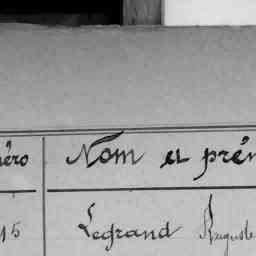 éro Nom et prén
15 Legrand Auguste